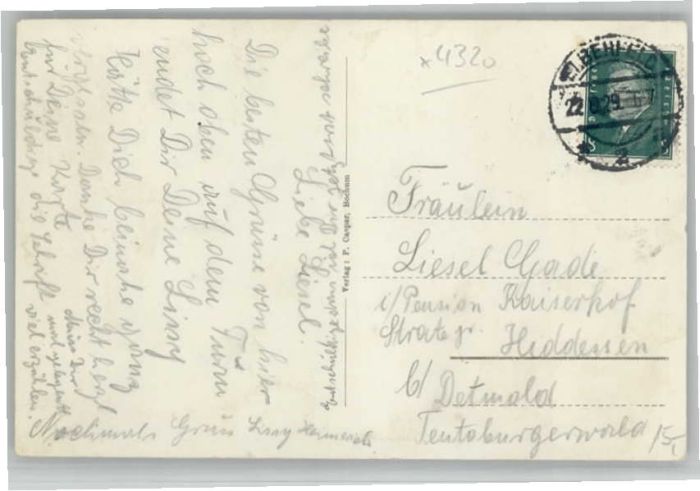 Liebe Liesel.
Die besten Grüsse von hier
hoch oben auf dem Turm
sendet Dir Deine Lissy
Hätte Dich beinahe ganz
vergessen. Danke Dir recht herzl
für Deine Karte
die Schrift
viel erzählen.
Nochmals Gruss Lissy
Verlag: F. Caspar, Bochum
x4320
22. 29.
Fräulein
Liesel Gade
i/Pension Kaiserhof
Hiddessen
b/ Detmold
Teutoburgerwald
15,